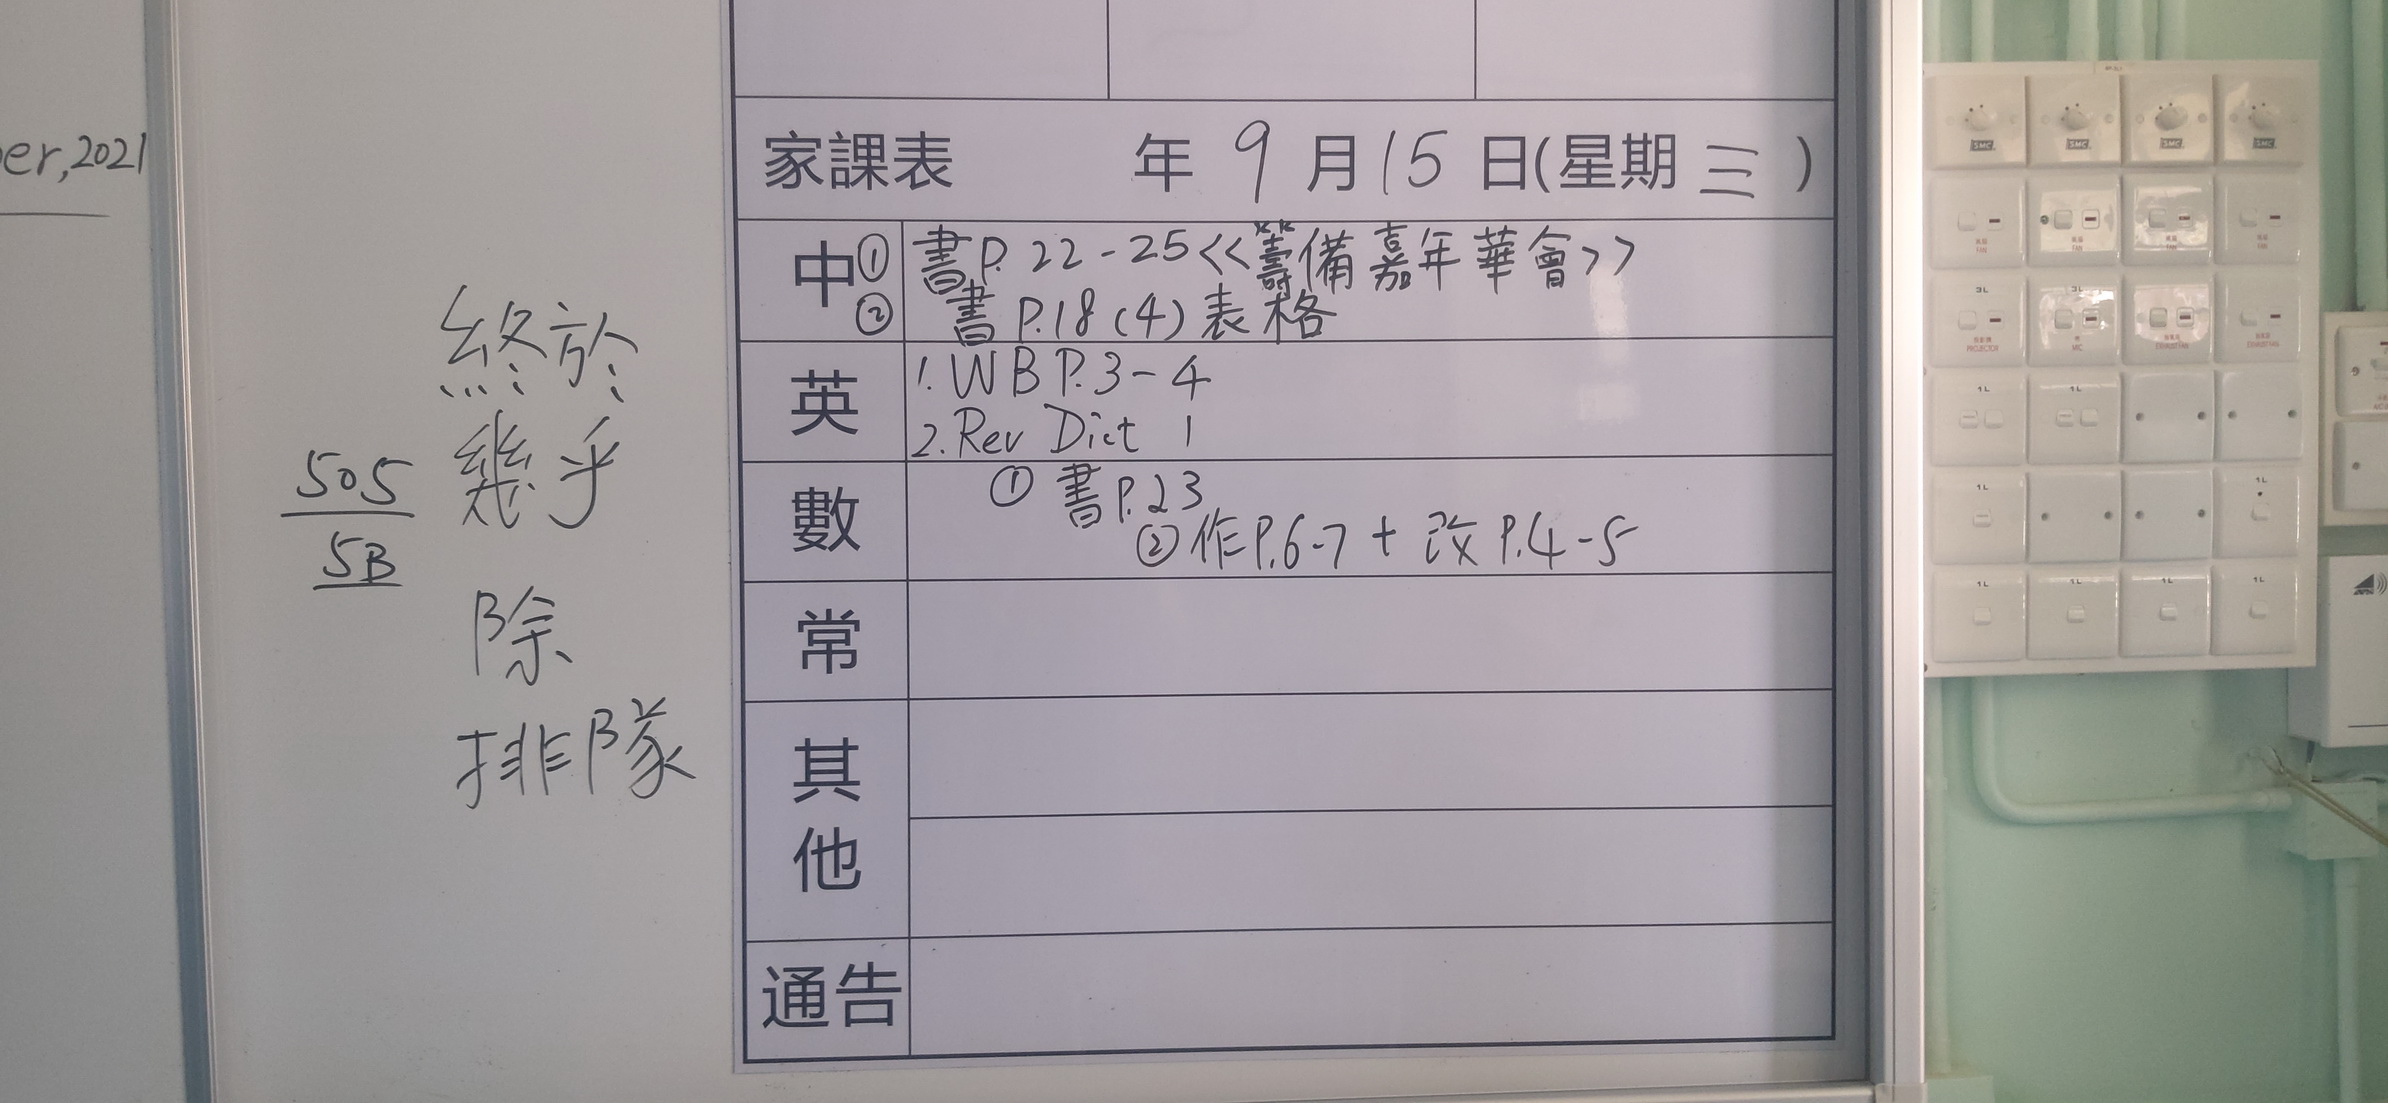 er,2021
終於
幾乎
505
5B
除
排隊
家課表 年 9 月 15 日(星期 三 )
中 ① 書P. 22-25<<籌備嘉年華會>>
② 書 P.18 (4) 表格
英 1. WB P.3-4
2. Rev Dict 1
數 ① 書P.23
② 作P.6-7 + 改 P.4-5
常
其他
通告
SMC SMC SMC SMC
FAN FAN FAN FAN
3L 3L
PROJECTOR MIC EXHAUST FAN EXHAUST FAN
1L 1L
1L 1L
1L 1L 1L 1L